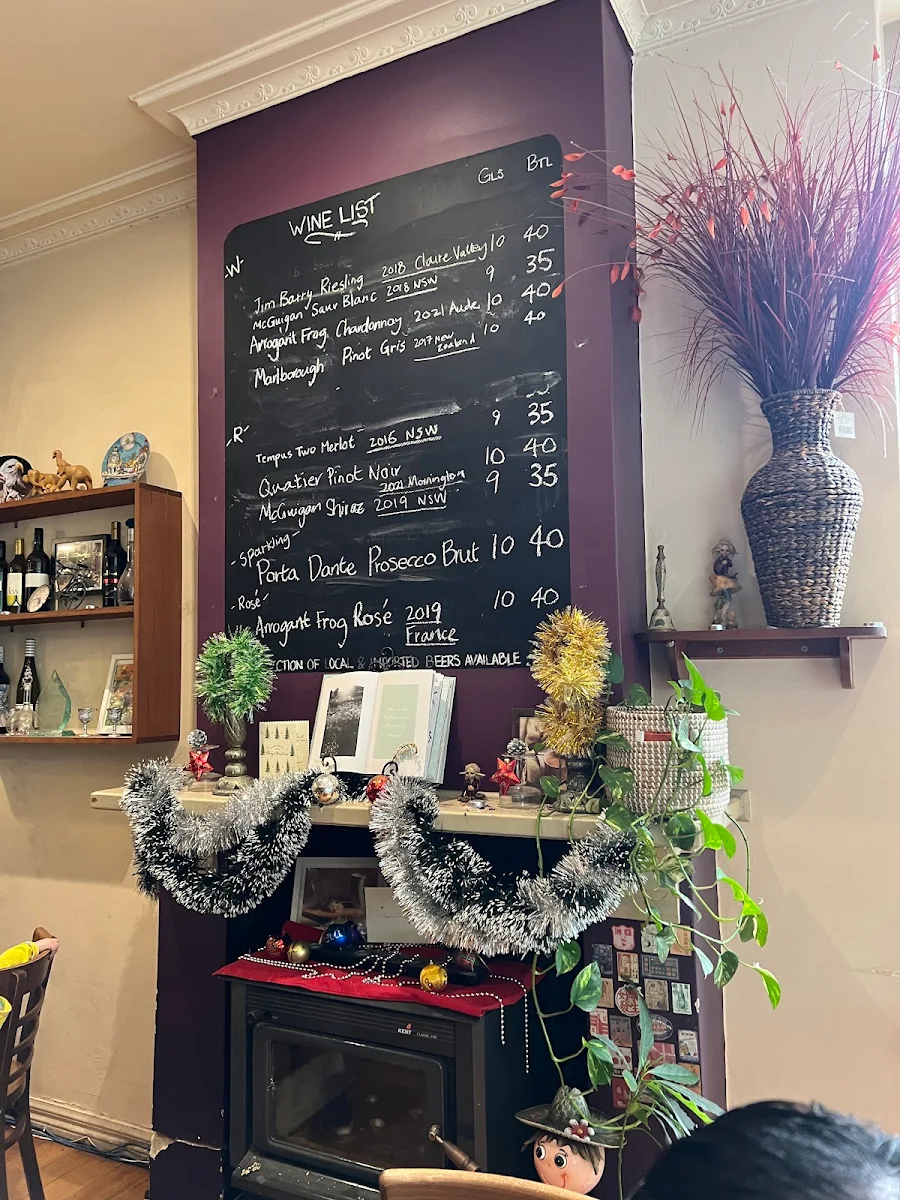 WINE LIST GLS BTL
-W-
Jim Barry Riesling 2018 Claire Valley 10 40
McGuigan Sauv Blanc 2018 NSW 9 35
Arrogant Frog Chardonnay 2021 Aude 10 40
Marlborough Pinot Gris 2017 New Zealand 10 40
-R-
Tempus Two Merlot 2016 NSW 9 35
Quartier Pinot Noir 2021 Mornington 10 40
McGuigan Shiraz 2019 NSW 9 35
-Sparkling-
Porta Dante Prosecco Brut 10 40
-Rosé-
Arrogant Frog Rosé 2019 France 10 40
CTION OF LOCAL & IMPORTED BEERS AVAILABLE
KENT